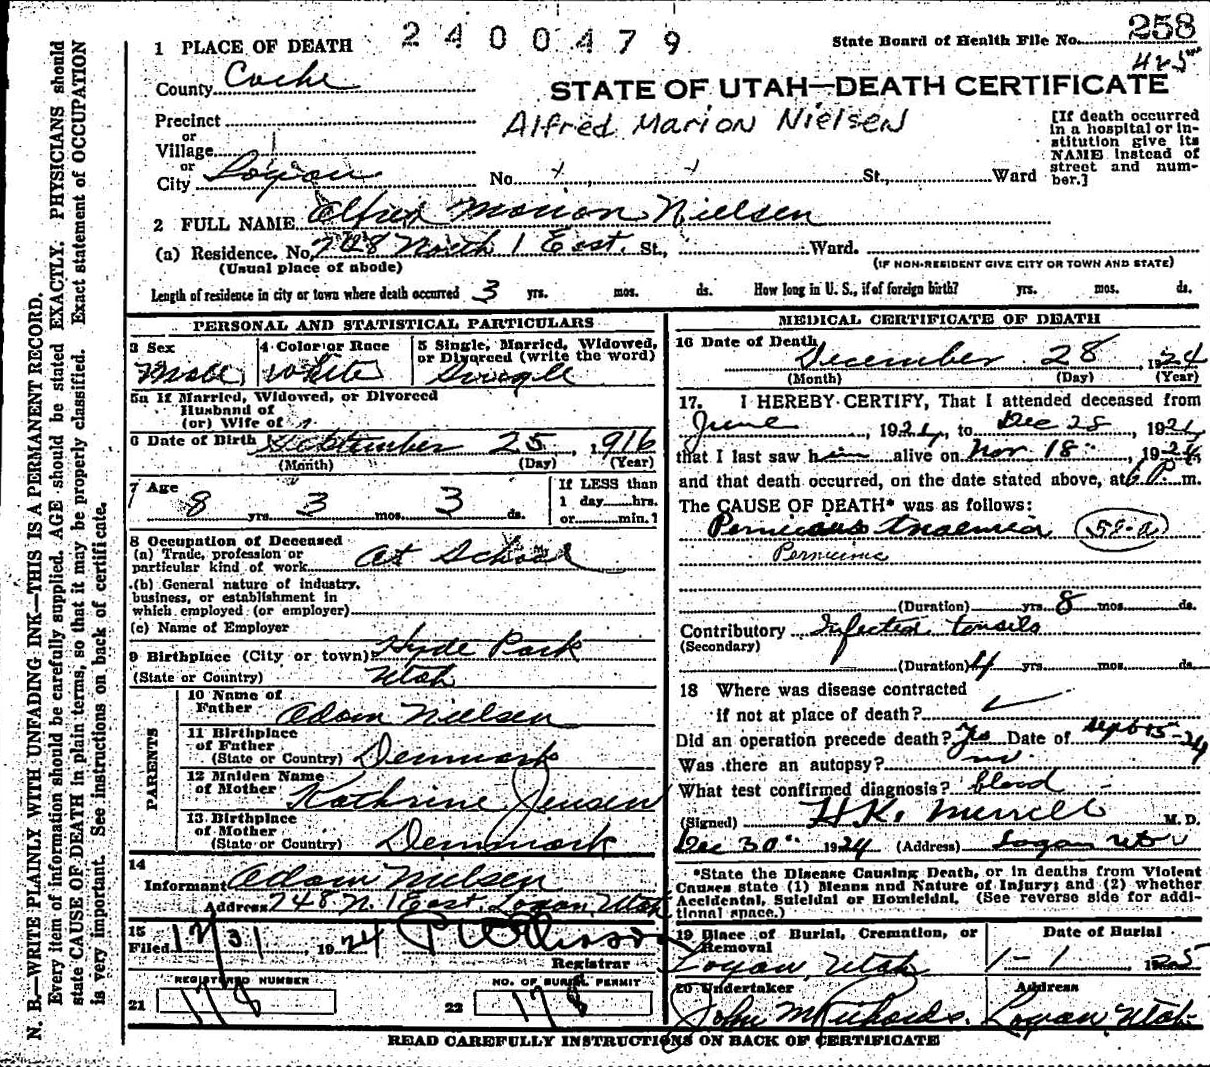 2400479
State Board of Health File No. 258
425
1 PLACE OF DEATH
County Cache
STATE OF UTAH—DEATH CERTIFICATE
Alfred Marion Nielsen
Precinct
or
Village
or
City Logan No. St., Ward
[If death occurred in a hospital or in-
stitution give its
NAME instead of
street and num-
ber.]
2 FULL NAME Alfred Marion Nielsen
(a) Residence. No. 748 North 1 East. St., Ward.
(Usual place of abode) (IF NON-RESIDENT GIVE CITY OR TOWN AND STATE)
Length of residence in city or town where death occurred 3 yrs. mos. ds. How long in U. S., if of foreign birth? yrs. mos. ds.
PERSONAL AND STATISTICAL PARTICULARS
3 Sex Male
4 Color or Race White
5 Single, Married, Widowed, or Divorced (write the word) Single
5a If Married, Widowed, or Divorced
Husband of
(or) Wife of
6 Date of Birth September 25, 1916
(Month) (Day) (Year)
7 Age 8 yrs. 3 mos. 3 ds.
If LESS than
1 day hrs.
or min.
8 Occupation of Deceased
(a) Trade, profession or
particular kind of work At School
(b) General nature of industry,
business, or establishment in
which employed (or employer)
(c) Name of Employer
9 Birthplace (City or town) Hyde Park
(State or Country) Utah
PARENTS
10 Name of
Father Adam Nielsen
11 Birthplace
of Father
(State or Country) Denmark
12 Maiden Name
of Mother Kathrine Jensen
13 Birthplace
of Mother
(State or Country) Denmark
14
Informant Adam Nielsen
Address 748 N. 1 East Logan, Utah
15
Filed 12/31 1924
Registrar
REGISTERED NUMBER
21 178
NO. OF BURIAL PERMIT
22 178
MEDICAL CERTIFICATE OF DEATH
16 Date of Death
December 28, 1924
(Month) (Day) (Year)
17. I HEREBY CERTIFY, That I attended deceased from
June, 1924, to Dec 28, 1924,
that I last saw him alive on Nov 18, 1924,
and that death occurred, on the date stated above, at 6 P. m.
The CAUSE OF DEATH* was as follows:
Pernicious Anaemia 58-a
Pernicious
(Duration) yrs. 8 mos. ds.
Contributory Infected tonsils
(Secondary)
(Duration) 4 yrs. mos. ds.
18 Where was disease contracted
if not at place of death?
Did an operation precede death? Yes Date of Sept 15-24
Was there an autopsy? no
What test confirmed diagnosis? blood
(Signed) H.K. Merrill M. D.
Dec 30 1924 (Address) Logan Utah
*State the Disease Causing Death, or in deaths from Violent
Causes state (1) Means and Nature of Injury; and (2) whether
Accidental, Suicidal or Homicidal. (See reverse side for addi-
tional space.)
19 Place of Burial, Cremation, or
Removal
Logan, Utah
Date of Burial
1-1 1925
20 Undertaker
John M Richards.
Address
Logan, Utah
READ CAREFULLY INSTRUCTIONS ON BACK OF CERTIFICATE
N. B.—WRITE PLAINLY WITH UNFADING INK—THIS IS A PERMANENT RECORD.
Every item of information should be carefully supplied. AGE should be stated EXACTLY. PHYSICIANS should
state CAUSE OF DEATH in plain terms, so that it may be properly classified. Exact statement of OCCUPATION
is very important. See instructions on back of certificate.